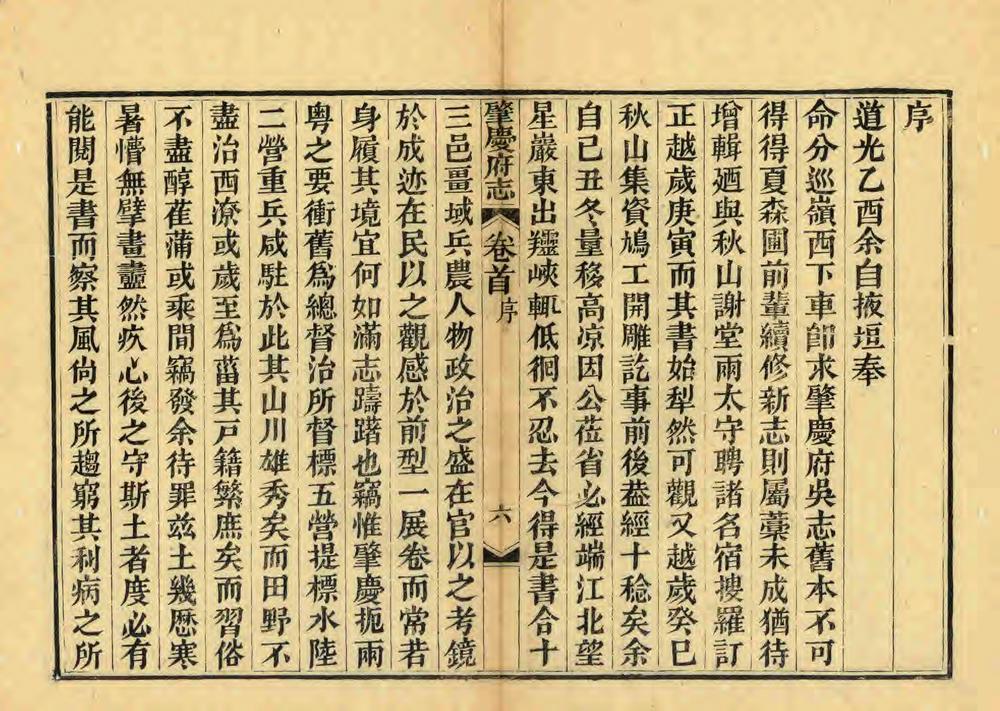 序
道光乙酉余自掖垣奉
命分巡嶺西下車卽求肇慶府吳志舊本不可
得得夏森圃前輩續修新志則屬藁未成猶待
增輯廼與秋山謝堂兩太守聘諸名宿搜羅訂
正越歲庚寅而其書始犁然可觀又越歲癸巳
秋山集資鳩工開雕訖事前後葢經十稔矣余
自己丑冬量移高凉因公莅省必經端江北望
星巖東出羚峽輒低徊不忍去今得是書合十
肇慶府志 卷首 序 六
三邑畺域兵農人物政治之盛在官以之考鏡
於成迹在民以之觀感於前型一展卷而常若
身履其境宜何如滿志躊躇也竊惟肇慶扼兩
粵之要衝舊爲總督治所督標五營提標水陸
二營重兵咸駐於此其山川雄秀矣而田野不
盡治西潦或歲至爲菑其戸籍繁庶矣而習俗
不盡醇萑蒲或乘間竊發余待罪兹土幾歷寒
暑懵無擘畫衋然疚心後之守斯土者度必有
能閱是書而察其風尙之所趨窮其利病之所